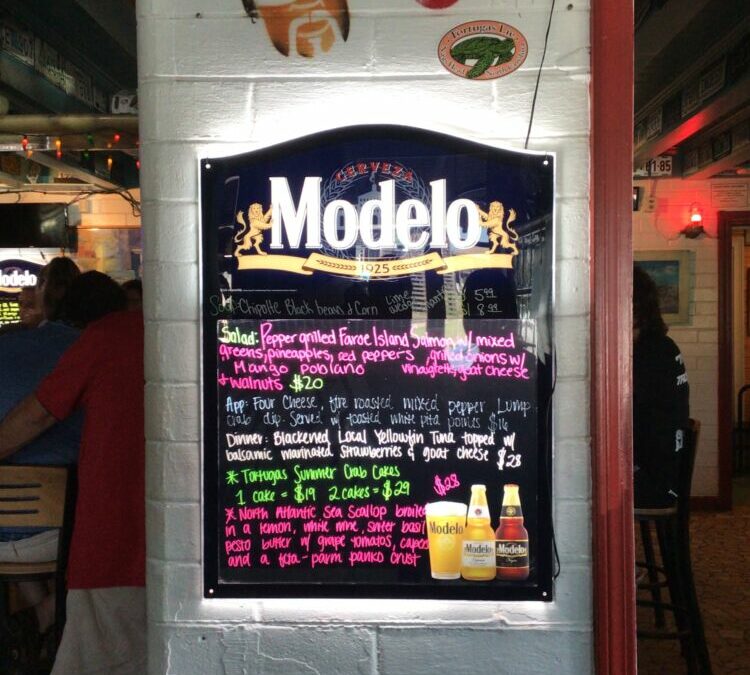 Tortugas Lie
CERVEZA
Modelo
1925
Chipotle Black bean & Corn Lime 5.99
8.99
Salad: Pepper grilled Faroe Island Salmon w/ mixed
greens, pineapples, red peppers, grilled onions w/
Mango poblano vinaigrette, goat cheese
+ walnuts $20
App: Four Cheese, fire roasted mixed pepper Lump
crab dip. Served w/ toasted white pita points $16
Dinner: Blackened Local Yellowfin Tuna topped w/
balsamic marinated strawberries & goat cheese $28
* Tortugas Summer Crab Cakes
1 cake = $19 2 cakes = $29
$28
* North Atlantic Sea Scallop broiled
in a lemon, white wine, butter basil
pesto butter w/ grape tomatos, capers
and a feta-parm panko crust
Modelo
Modelo
Modelo
Modelo
81-85